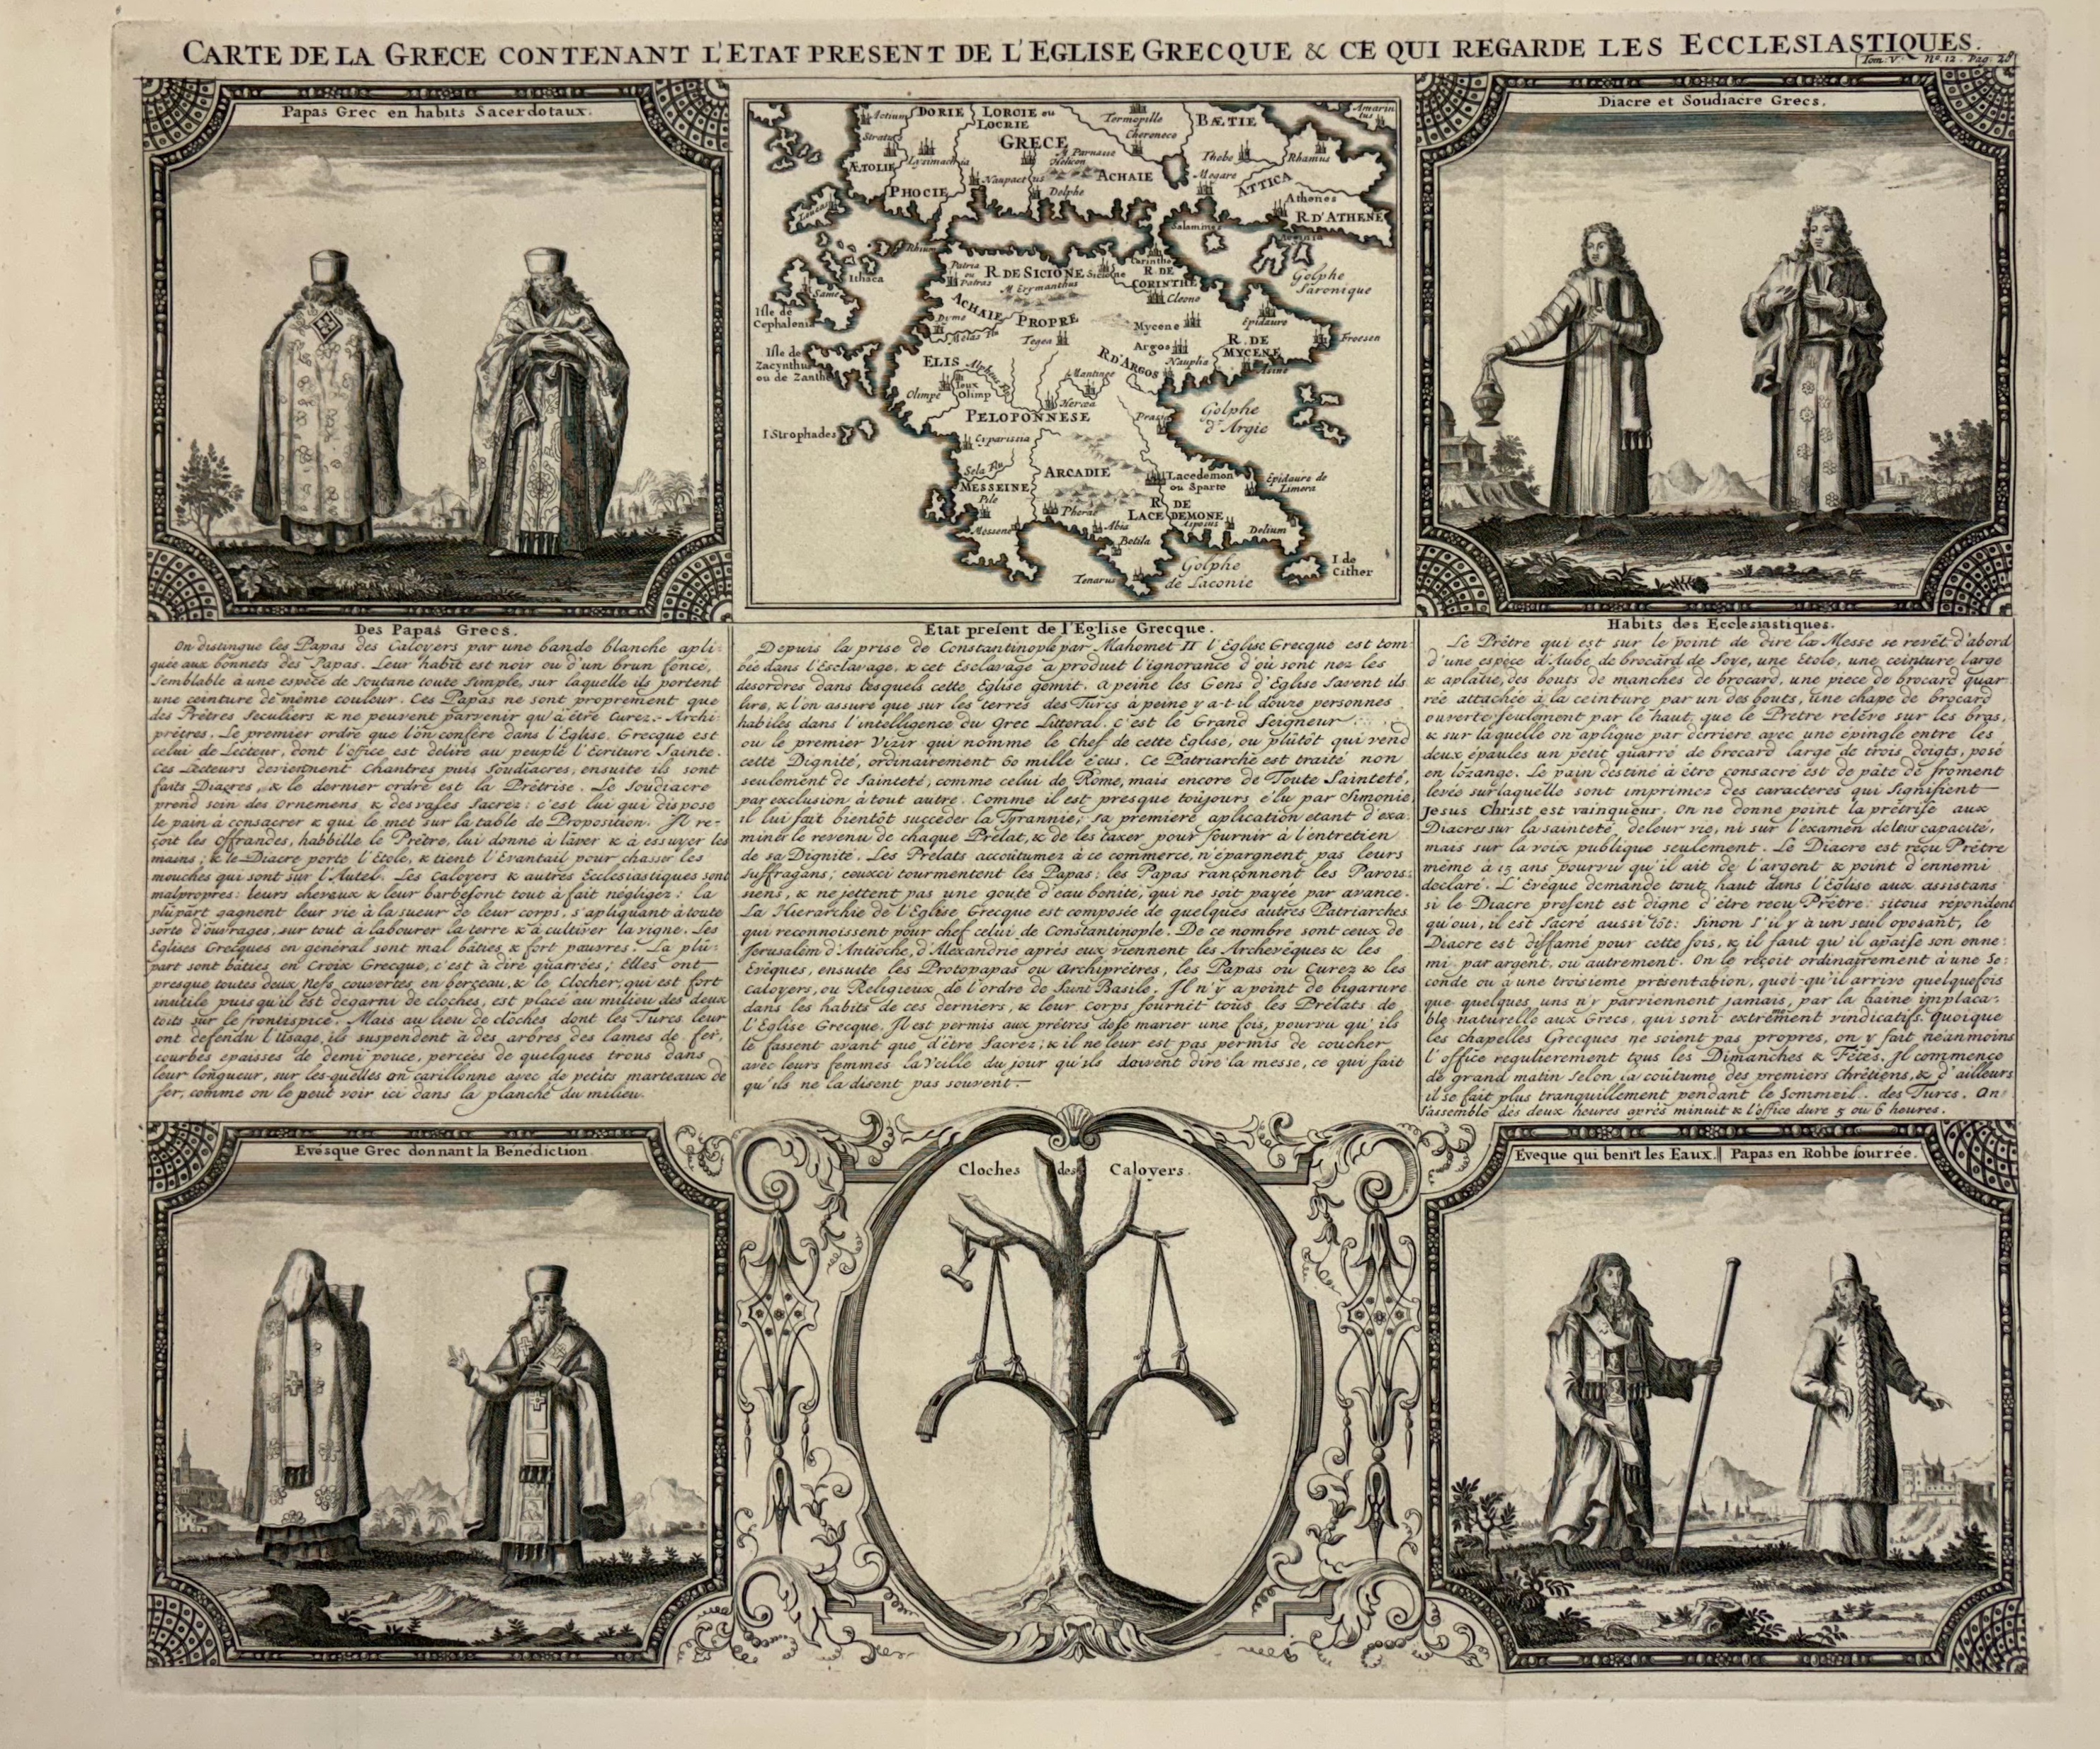 CARTE DE LA GRECE CONTENANT L'ETAT PRESENT DE L'EGLISE GRECQUE & CE QUI REGARDE LES ECCLESIASTIQUES.
Tom: V. N.º 12. Pag: 28
Papas Grec en habits Sacerdotaux.
Actium
DORIE
LORCIE ou
LOCRIE
Termopille
BÆTIE
Amarin
tus
Stratus
Lysimachia
GRECE
Cheronece
M. Parnasse
Helicon
Thebe
Rhamus
ÆTOLIE
PHOCIE
Naupactus
Delphe
ACHAIE
Megare
ATTICA
Athenes
R. D'ATHENE
Salamine
Rhium
Ithaca
Same
Isle de
Cephalenia
Patria
ou
Patras
R. DE SICIONE
Sicione
M. Erymanthus
Corinthe
R. DE
CORINTHE
Cleone
Golphe
Saronique
ACHAIE PROPRE
Dyme
Melas Flu
Tegea
Mycene
Argos
Epidaure
R. DE
MYCENE
Nauplia
Asine
Froesen
Isle de
Zacynthus
ou de Zanthe
ELIS
Alpheus
Olimpe
Jeux
Olimp
Mantinee
R. D'ARGOS
Heræa
PELOPONNESE
Golphe
d'Argie
I Strophades
Cyparissia
Sela Flu
MESSEINE
ARCADIE
Lacedemon
ou Sparte
Epidaure de
Limera
Pile
Pherae
R. DE
LACEDEMONE
Messene
Abia
Betila
Delium
Tenarus
Golphe
de Laconie
I. de
Cither
Diacre et Soudiacre Grecs.
Des Papas Grecs.
On distingue les Papas des Caloyers par une bande blanche apli-
quée aux bonnets des Papas. Leur habit est noir ou d'un brun foncé,
semblable à une espéce de soutane toute simple, sur laquelle ils portent
une ceinture de même couleur. Ces Papas ne sont proprement que
des Prêtres seculiers & ne peuvent parvenir qu'à être Curez-Archi-
prêtres. Le premier ordre que l'on confére dans l'Eglise Grecque est
celui de Lecteur, dont l'office est de lire au peuple l'Ecriture Sainte.
Ces Lecteurs deviennent Chantres puis Soudiacres, ensuite ils sont
faits Diacres, & le dernier ordre est la Prêtrise. Le Soudiacre
prend soin des Ornemens & des vases Sacrez: c'est lui qui dispose
le pain à consacrer & qui le met sur la table de Proposition. Il re-
çoit les offrandes, habbille le Prêtre, lui donne à laver & à essuyer les
mains; & le Diacre porte l'étole, & tient l'Evantail pour chasser les
mouches qui sont sur l'Autel. Les Caloyers & autres Ecclesiastiques sont
malpropres: leurs cheveux & leur barbe sont tout à fait négligez: la
plûpart gagnent leur vie à la sueur de leur corps, s'apliquant à toute
sorte d'ouvrages, sur tout à labourer la terre & à cultiver la vigne. Les
Eglises Grecques en général sont mal bâties & fort pauvres. La plû-
part sont bâties en Croix Grecque, c'est à dire quarrées; Elles ont
presque toutes deux Nefs couvertes en berçeau, & le clocher, qui est fort
inutile puis qu'il est dégarni de cloches, est placé au milieu des deux
toits sur le frontispice. Mais au lieu de clôches dont les Turcs leur
ont defendu l'usage, ils suspendent à des arbres des lames de fer,
courbes epaisses de demi pouce, percées de quelques trous dans
leur longueur, sur les-quelles on carillonne avec de petits marteaux de
fer, comme on le peut voir ici dans la planche du milieu.
Etat present de l'Eglise Grecque.
Depuis la prise de Constantinople par Mahomet II l'Eglise Grecque est tom-
bée dans l'Esclavage, & cet Esclavage a produit l'ignorance d'où sont nez les
desordres dans lesquels cette Eglise gemit. A peine les Gens d'Eglise savent ils
lire, & l'on assure que sur les terres des Turcs à peine y a-t-il douze personnes
habiles dans l'intelligence du Grec Litteral. C'est le Grand Seigneur
ou le premier Vizir qui nomme le chef de cette Eglise, ou plûtôt qui vend
cette Dignité, ordinairement 60 mille écus. Ce Patriarche est traité non
seulement de Sainteté, comme celui de Rome, mais encore de Toute Sainteté,
par exclusion à tout autre. Comme il est presque toûjours élu par Simonie
il lui fait bientôt succéder la Tyrannie; sa premiere aplication etant d'exa-
miner le revenu de chaque Prélat, & de les taxer pour fournir à l'entretien
de sa Dignité. Les Prelats accoutumez à ce commerce, n'épargnent pas leurs
suffragans; ceuxci tourmentent les Papas: les Papas rançonnent les Parois-
siens, & ne jettent pas une goute d'eau bonite, qui ne soit payée par avance.
La Hierarchie de l'Eglise Grecque est composée de quelques autres Patriarches
qui reconnoissent pour chef celui de Constantinople. De ce nombre sont ceux de
Jerusalem d'Antioche, d'Alexandrie aprés eux viennent les Archevêques & les
Evêques, ensuite les Protopapas ou archiprêtres, les Papas ou Curez & les
Caloyers, ou Religieux de l'ordre de Saint Basile. Il n'y a point de bigarure
dans les habits de ces derniers, & leur corps fournit tous les Prélats de
l'Eglise Grecque. Il est permis aux prêtres de se marier une fois, pourvu qu'ils
le fassent avant que d'être Sacrez; & il ne leur est pas permis de coucher
avec leurs femmes la Veille du jour qu'ils doivent dire la messe, ce qui fait
qu'ils ne la disent pas souvent.
Habits des Ecclesiastiques.
Le Prêtre qui est sur le point de dire la Messe se revêt d'abord
d'une espéce d'Aube de brocard de Soye, une Etole, une ceinture large
& aplatie, des bouts de manches de brocard, une piece de brocard quar-
rée attachée à la ceinture par un des bouts, une chape de brocard
ouverte seulement par le haut, que le Prêtre reléve sur les bras,
& sur laquelle on aplique par derriere avec une épingle entre les
deux épaules un petit quarré de brocard large de trois doigts, posé
en lozange. Le pain destiné à être consacré est de pâte de froment
levée sur laquelle sont imprimez des caracteres qui signifient
Jesus Christ est vainqueur. On ne donne point la prêtrise aux
Diacres sur la sainteté de leur vie, ni sur l'examen de leur capacité,
mais sur la voix publique seulement. Le Diacre est reçu Prêtre
même à 15 ans pourvu qu'il ait de l'argent & point d'ennemi
declaré. L'Evêque demande tout haut dans l'Eglise aux assistans
si le Diacre present est digne d'être recu Prêtre: si tous répondent
qu'oui, il est Sacré aussi tôt: Sinon s'il y à un seul oposant, le
Diacre est diffamé pour cette fois, & il faut qu'il apaise son enne-
mi par argent, ou autrement. On le reçoit ordinairement à une Se-
conde ou à une troisieme présentation, quoi-qu'il arrive quelquefois
que quelques uns n'y parviennent jamais, par la haine implaca-
ble naturelle aux Grecs, qui sont extremement vindicatifs. Quoique
les chapelles Grecques ne soient pas propres, on y fait néanmoins
l'office regulierement tous les Dimanches & Fêtes. Il commence
de grand matin selon la coûtume des premiers Chrétiens, & d'ailleurs
il se fait plus tranquillement pendant le Sommeil des Turcs. On
s'assemble dès deux heures après minuit & l'office dure 5 ou 6 heures.
Evésque Grec donnant la Benediction
Cloches des Caloyers.
Eveque qui benit les Eaux. Papas en Robbe fourrée.